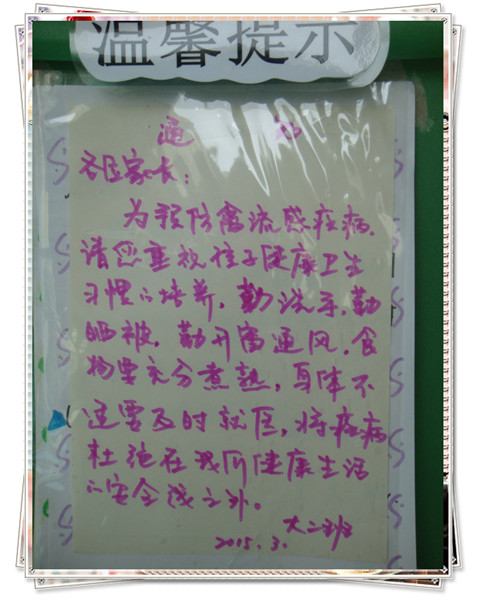 温馨提示
通知
各位家长：
为预防禽流感疫病，
请您重视孩子健康卫生
习惯的培养，勤洗手，勤
晒被，勤开窗通风，食
物要充分煮熟，身体不
适要及时就医，将疫病
杜绝在我们健康生活
的安全线之外。
大二班
2015.3.